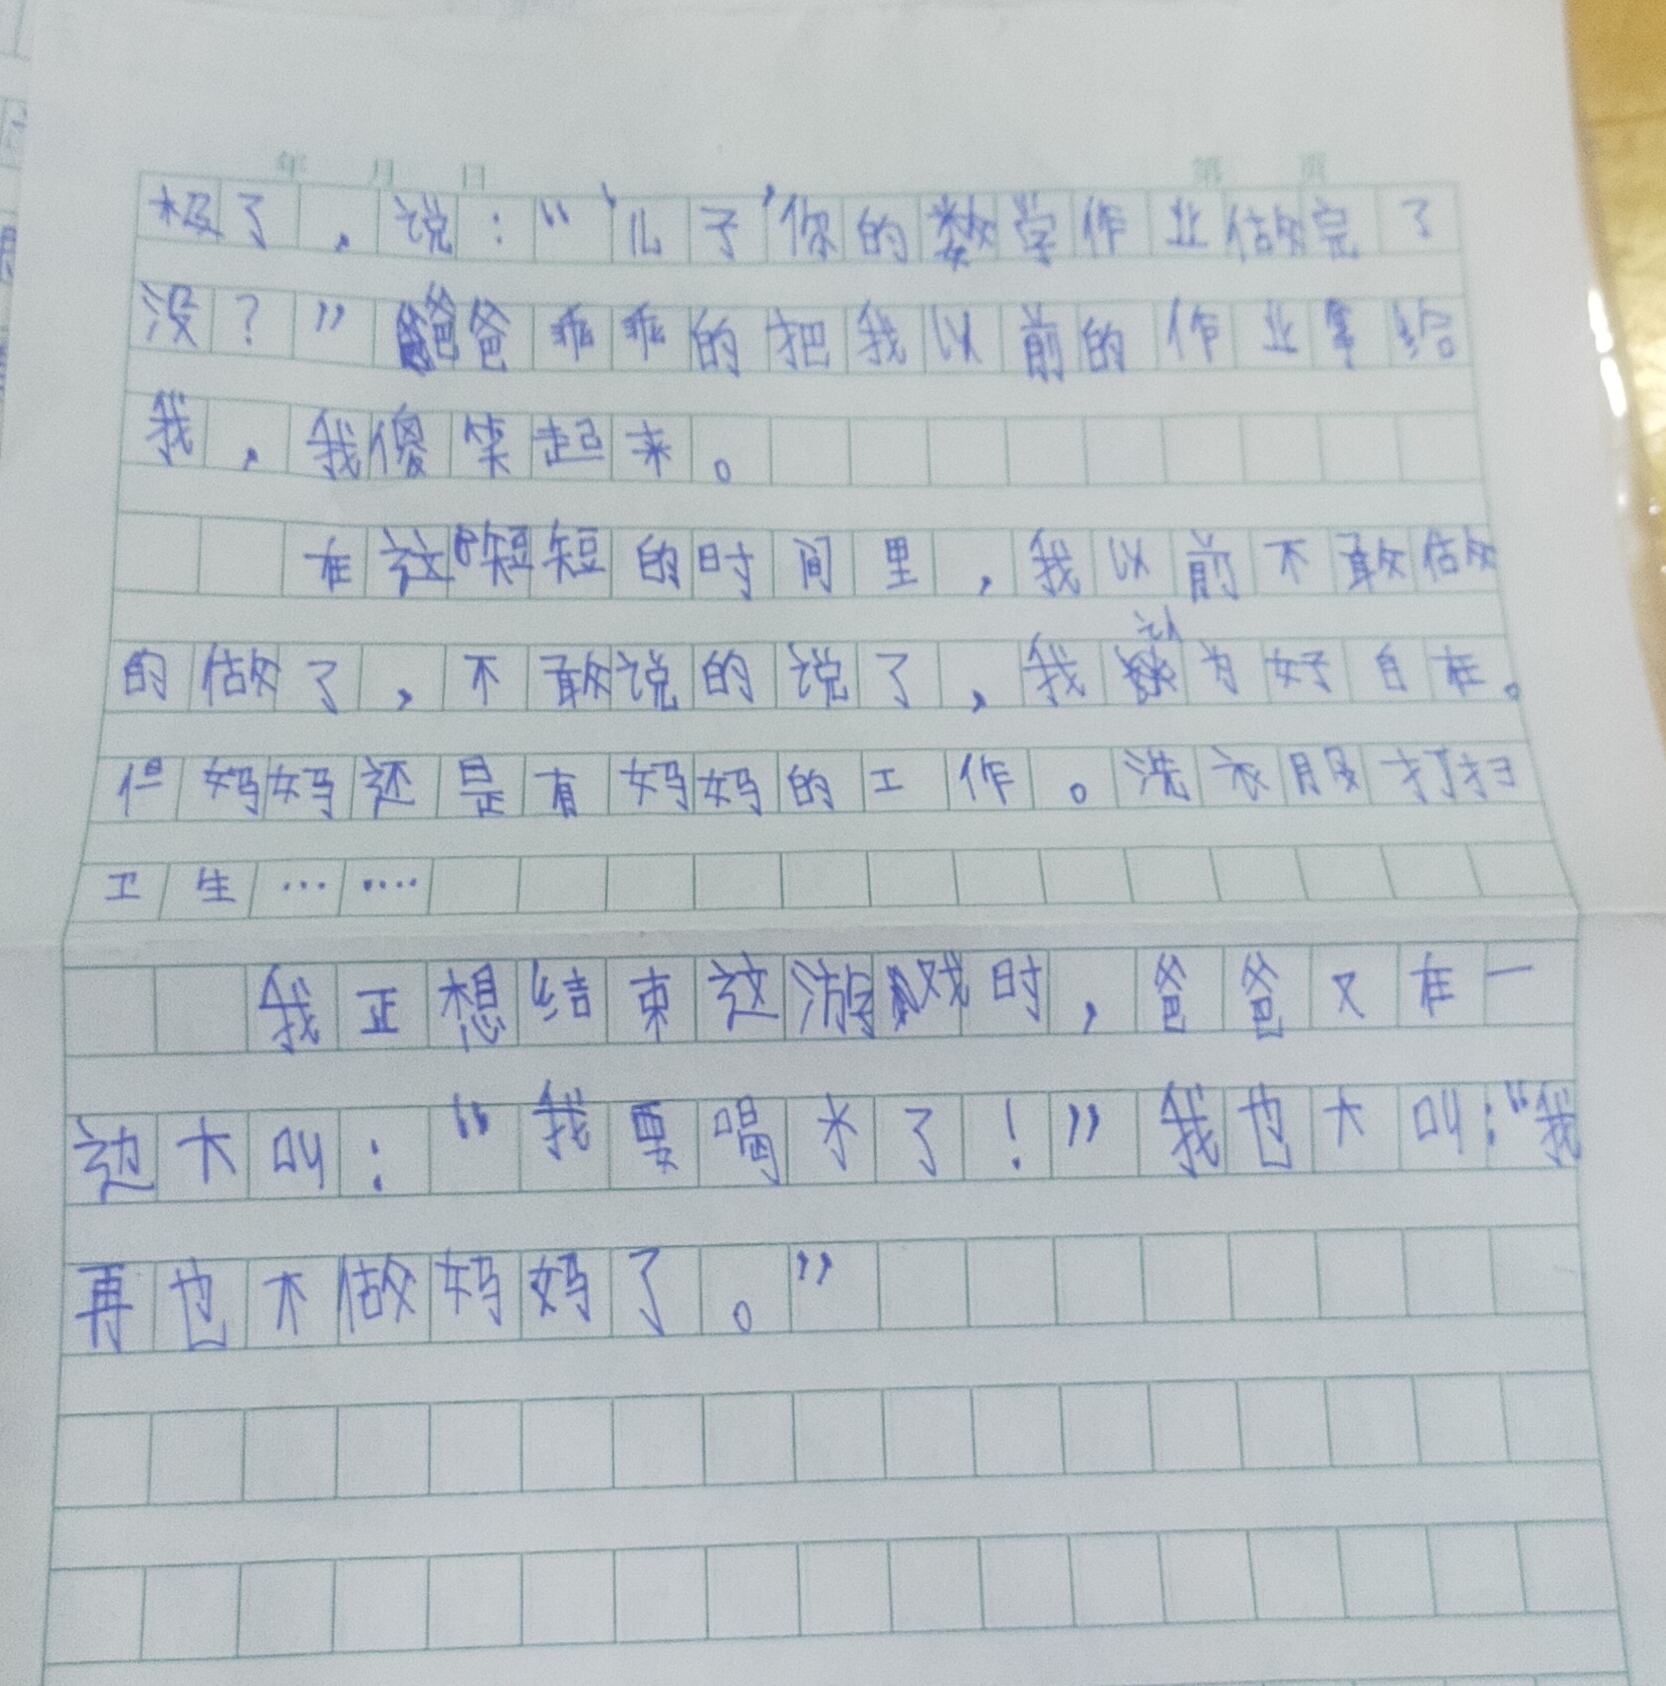 年 月 日 第 页
极了,说:“‘儿子’你的数学作业做完了
没?”爸爸乖乖的把我以前的作业拿给
我,我傻笑起来。
在这短短的时间里,我以前不敢做
的做了,不敢说的说了,我认为好自在。
但妈妈还是有妈妈的工作。洗衣服打扫
卫生……
我正想结束这游戏时,爸爸又在一
边大叫:“我要喝水了!”我也大叫:“我
再也不做妈妈了。”